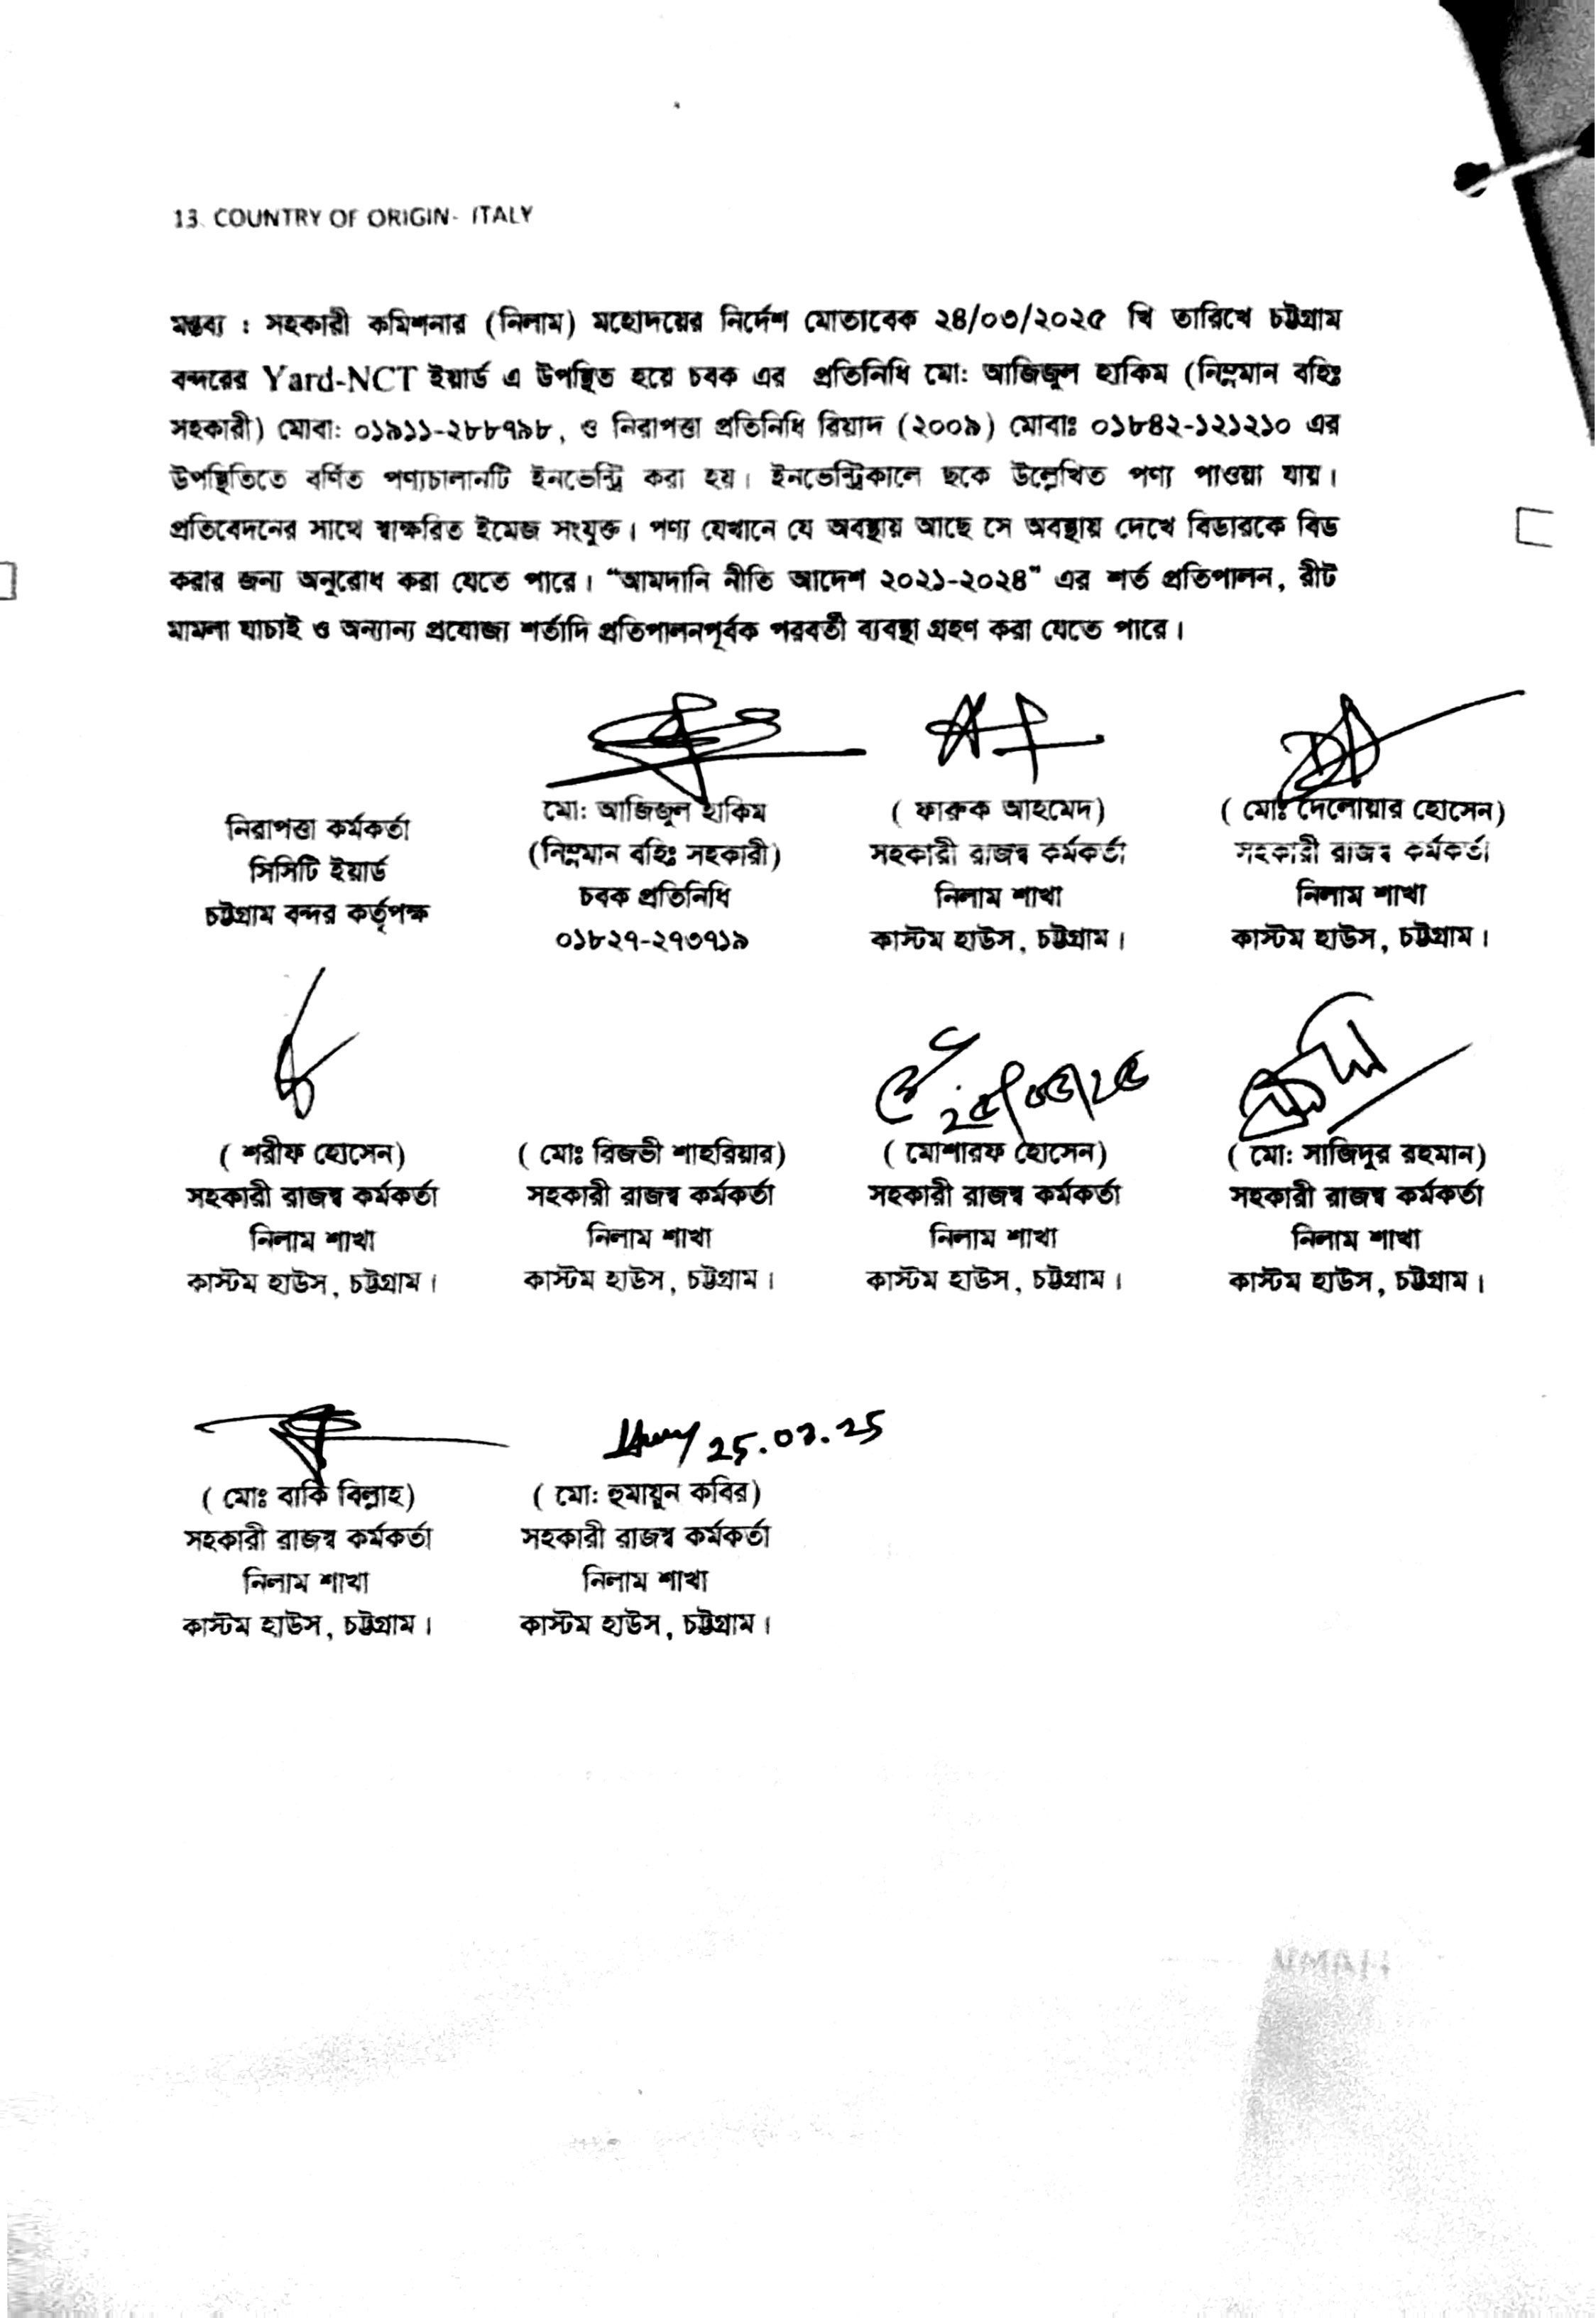 13. COUNTRY OF ORIGIN- ITALY
মন্তব্য : সহকারী কমিশনার (নিলাম) মহোদয়ের নির্দেশ মোতাবেক ২৪/০৩/২০২৫ খি তারিখে চট্টগ্রাম
বন্দরের Yard-NCT ইয়ার্ড এ উপস্থিত হয়ে চবক এর প্রতিনিধি মো: আজিজুল হাকিম (নিম্নমান বহিঃ
সহকারী) মোবা: ০১৯১১-২৮৮৭৯৮, ও নিরাপত্তা প্রতিনিধি রিয়াদ (২০০৯) মোবাঃ ০১৮৪২-১২১২১০ এর
উপস্থিতিতে বর্ণিত পণ্যচালানটি ইনভেন্ট্রি করা হয়। ইনভেন্ট্রিকালে ছকে উল্লেখিত পণ্য পাওয়া যায়।
প্রতিবেদনের সাথে স্বাক্ষরিত ইমেজ সংযুক্ত। পণ্য যেখানে যে অবস্থায় আছে সে অবস্থায় দেখে বিডারকে বিড
করার জন্য অনুরোধ করা যেতে পারে। “আমদানি নীতি আদেশ ২০২১-২০২৪” এর শর্ত প্রতিপালন, রীট
মামলা যাচাই ও অন্যান্য প্রযোজ্য শর্তাদি প্রতিপালনপূর্বক পরবর্তী ব্যবস্থা গ্রহণ করা যেতে পারে।
নিরাপত্তা কর্মকর্তা
সিসিটি ইয়ার্ড
চট্টগ্রাম বন্দর কর্তৃপক্ষ
মো: আজিজুল হাকিম
(নিম্নমান বহিঃ সহকারী)
চবক প্রতিনিধি
০১৮২৭-২৭৩৭১৯
( ফারুক আহমেদ)
সহকারী রাজস্ব কর্মকর্তা
নিলাম শাখা
কাস্টম হাউস, চট্টগ্রাম।
( মোঃ দেলোয়ার হোসেন)
সহকারী রাজস্ব কর্মকর্তা
নিলাম শাখা
কাস্টম হাউস, চট্টগ্রাম।
( শরীফ হোসেন)
সহকারী রাজস্ব কর্মকর্তা
নিলাম শাখা
কাস্টম হাউস, চট্টগ্রাম।
( মোঃ রিজভী শাহরিয়ার)
সহকারী রাজস্ব কর্মকর্তা
নিলাম শাখা
কাস্টম হাউস, চট্টগ্রাম।
২৫/০৩/২৫
( মোশারফ হোসেন)
সহকারী রাজস্ব কর্মকর্তা
নিলাম শাখা
কাস্টম হাউস, চট্টগ্রাম।
( মো: সাজিদুর রহমান)
সহকারী রাজস্ব কর্মকর্তা
নিলাম শাখা
কাস্টম হাউস, চট্টগ্রাম।
( মোঃ বাকি বিল্লাহ)
সহকারী রাজস্ব কর্মকর্তা
নিলাম শাখা
কাস্টম হাউস, চট্টগ্রাম।
25.03.25
( মো: হুমায়ুন কবির)
সহকারী রাজস্ব কর্মকর্তা
নিলাম শাখা
কাস্টম হাউস, চট্টগ্রাম।